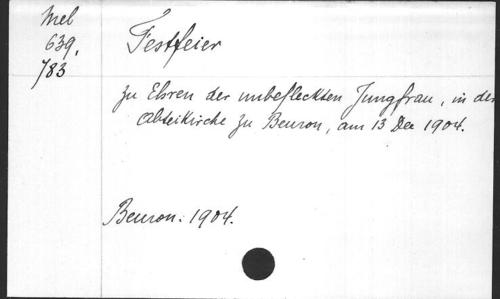 Mel
639,
783
Festfeier
zu Ehren der unbefleckten Jungfrau, in der
Abteikirche zu Beuron, am 13 Dec 1904.
Beuron: 1904.